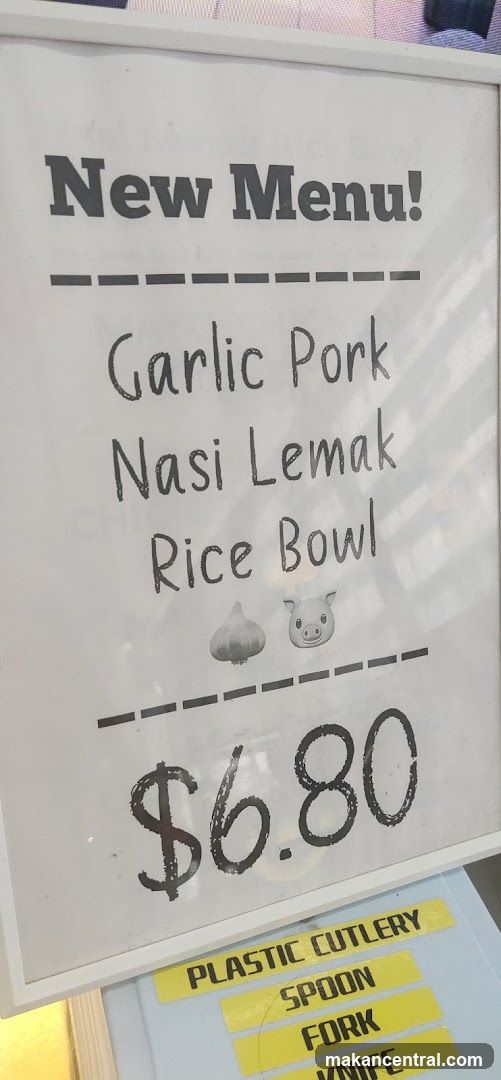 New Menu!
Garlic Pork
Nasi Lemak
Rice Bowl
$6.80
PLASTIC CUTLERY
SPOON
FORK
KNIFE
makancentral.com